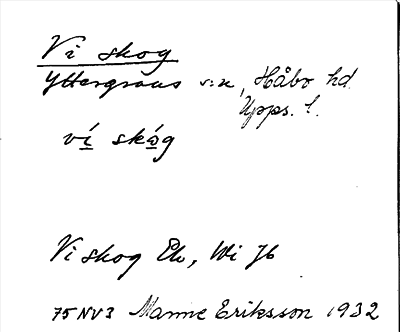 Vi skog
Yttergrans s:n, Håbo hd.
Upps. l.
ví skóg
Vi skog Ek, Wi Jb
75 NV3 Manne Eriksson 1932